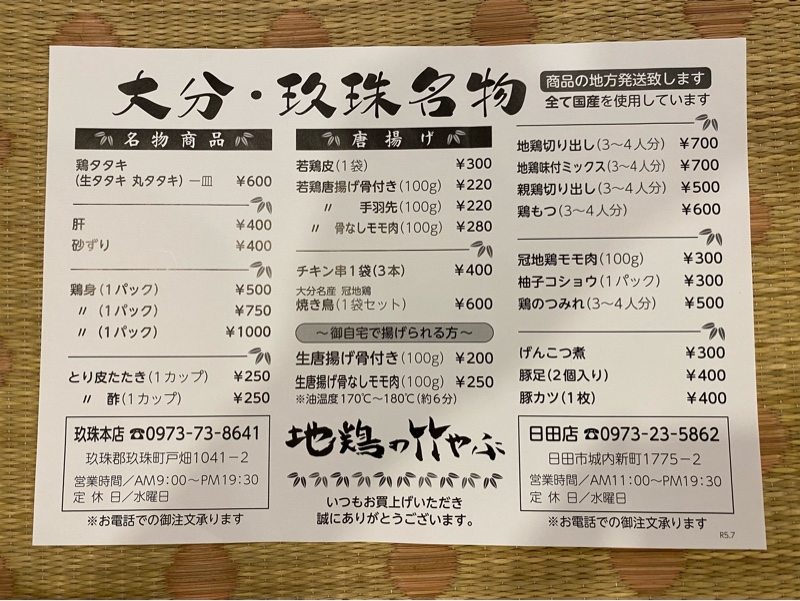 大分・玖珠名物
商品の地方発送致します
全て国産を使用しています
名物商品
鶏タタキ
(生タタキ 丸タタキ) 一皿 ¥600
肝 ¥400
砂ずり ¥400
鶏身(1パック) ¥500
〃 (1パック) ¥750
〃 (1パック) ¥1000
とり皮たたき(1カップ) ¥250
〃 酢(1カップ) ¥250
唐揚げ
若鶏皮(1袋) ¥300
若鶏唐揚げ骨付き(100g) ¥220
〃 手羽先(100g) ¥220
〃 骨なしモモ肉(100g) ¥280
チキン串1袋(3本) ¥400
大分名産 冠地鶏
焼き鳥(1袋セット) ¥600
〜御自宅で揚げられる方〜
生唐揚げ骨付き(100g) ¥200
生唐揚げ骨なしモモ肉(100g) ¥250
※油温度170℃〜180℃(約6分)
地鶏切り出し(3〜4人分) ¥700
地鶏味付ミックス(3〜4人分) ¥700
親鶏切り出し(3〜4人分) ¥500
鶏もつ(3〜4人分) ¥600
冠地鶏モモ肉(100g) ¥300
柚子コショウ(1パック) ¥300
鶏のつみれ(3〜4人分) ¥500
げんこつ煮 ¥300
豚足(2個入り) ¥400
豚カツ(1枚) ¥400
玖珠本店 ☎0973-73-8641
玖珠郡玖珠町戸畑1041−2
営業時間/AM9:00〜PM19:30
定休日/水曜日
※お電話での御注文承ります
地鶏の竹やぶ
いつもお買上げいただき
誠にありがとうございます。
日田店 ☎0973-23-5862
日田市城内新町1775−2
営業時間/AM11:00〜PM19:30
定休日/水曜日
※お電話での御注文承ります
R5.7